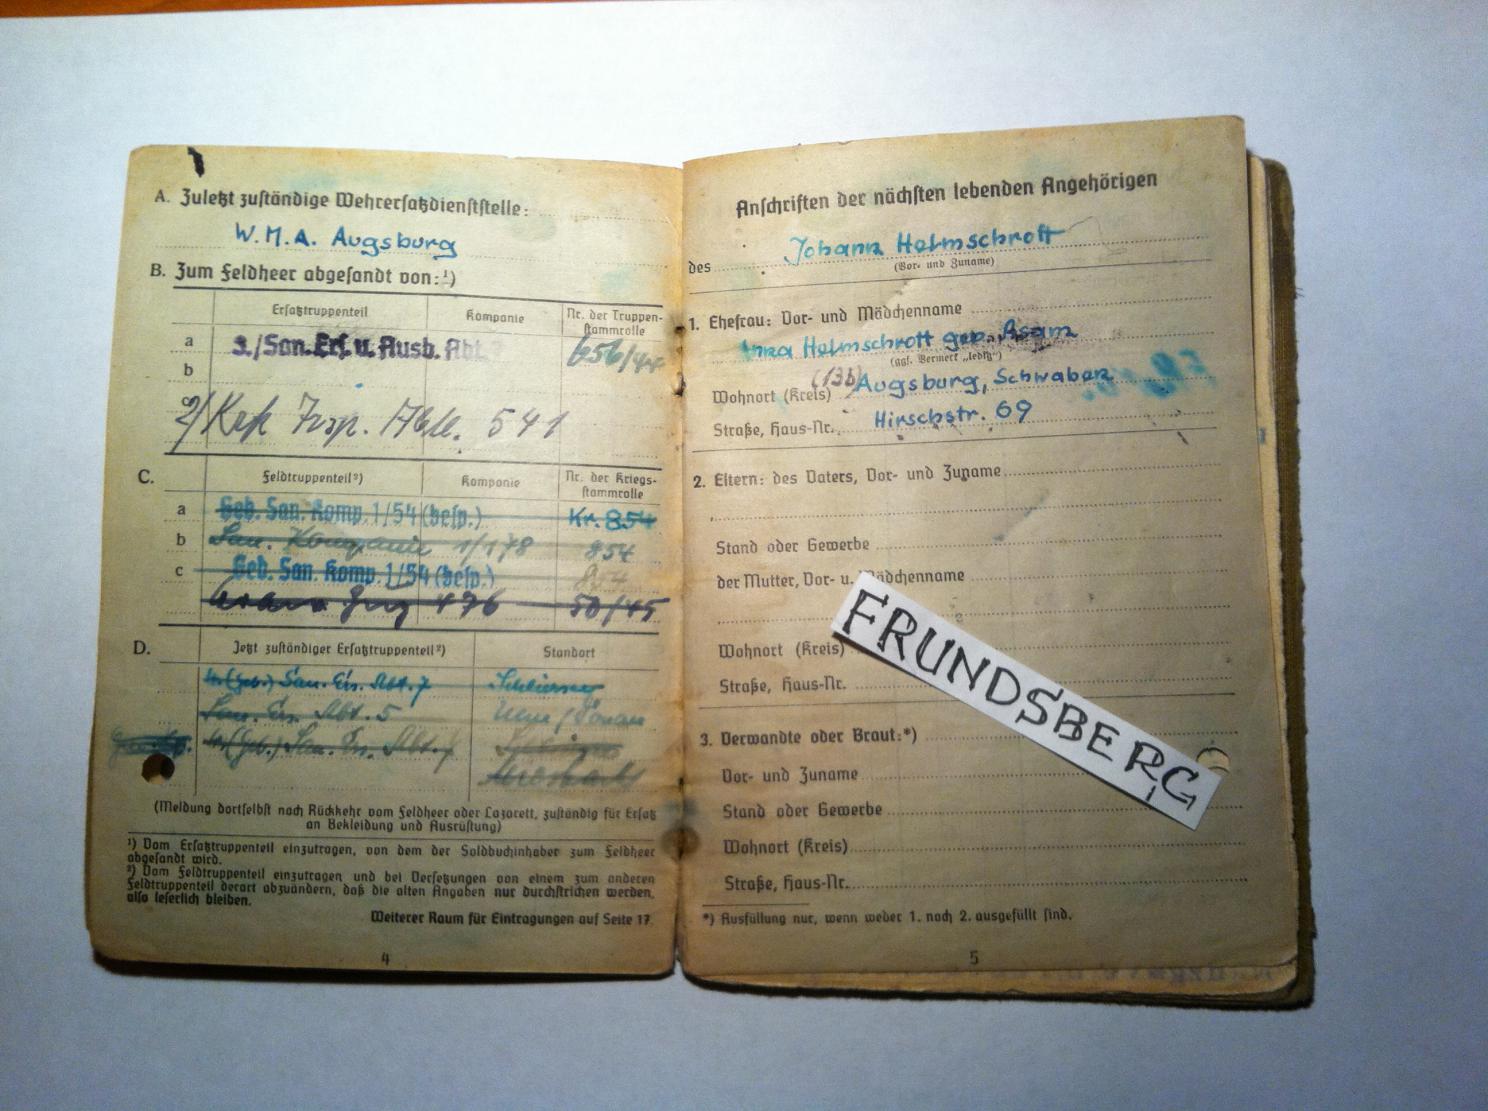 A. Zuletzt zuständige Wehrersatzdienststelle:
W.M.A. Augsburg
B. Zum Feldheer abgesandt von:¹)
Ersatztruppenteil Kompanie Nr. der Truppen-
stammrolle
a 3./San. Ers. u. Ausb. Abt. 656/44
b
c
C. Feldtruppenteil²) Kompanie Nr. der Kriegs-
stammrolle
a Geb. San. Komp. 1/54 (besp.) Kr. 854
b San. Kompanie 1/178 854
c Geb. San. Komp. 1/54 (besp.) 854
476 50/45
D. Jetzt zuständiger Ersatztruppenteil²) Standort
(Geb.) San. Ers. Abt. 7
San. Ers. Abt. 5 Ulm/Donau
(Geb.) San. Ers. Abt. 7
(Meldung dortselbst nach Rückkehr vom Feldheer oder Lazarett, zuständig für Ersatz
an Bekleidung und Ausrüstung)
¹) Vom Ersatztruppenteil einzutragen, von dem der Soldbuchinhaber zum Feldheer
abgesandt wird.
²) Vom Feldtruppenteil einzutragen und bei Versetzungen von einem zum anderen
Feldtruppenteil derart abzuändern, daß die alten Angaben nur durchstrichen werden,
also leserlich bleiben.
Weiterer Raum für Eintragungen auf Seite 17.
4
Anschriften der nächsten lebenden Angehörigen
des Johann Helmschrott
(Vor- und Zuname)
1. Ehefrau: Vor- und Mädchenname
Helmschrott geb. Asam
(ggf. Vermerk „ledig")
Wohnort (Kreis) (13b) Augsburg, Schwaben
Straße, Haus-Nr. Hirschstr. 69
2. Eltern: des Vaters, Vor- und Zuname
Stand oder Gewerbe
der Mutter, Vor- u. Mädchenname
Wohnort (Kreis)
Straße, Haus-Nr.
FRUNDSBERG
3. Verwandte oder Braut:*)
Vor- und Zuname
Stand oder Gewerbe
Wohnort (Kreis)
Straße, Haus-Nr.
*) Ausfüllung nur, wenn weder 1. noch 2. ausgefüllt sind.
5